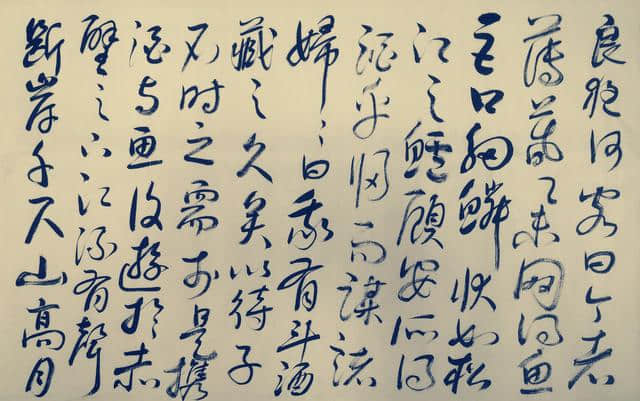 良夜何客曰今者
薄暮舉網得魚
巨口細鱗狀如松
江之鱸顧安所得
酒乎歸而謀諸
婦婦曰我有斗酒
藏之久矣以待子
不時之需於是攜
酒與魚復遊於赤
壁之下江流有聲
斷岸千尺山高月